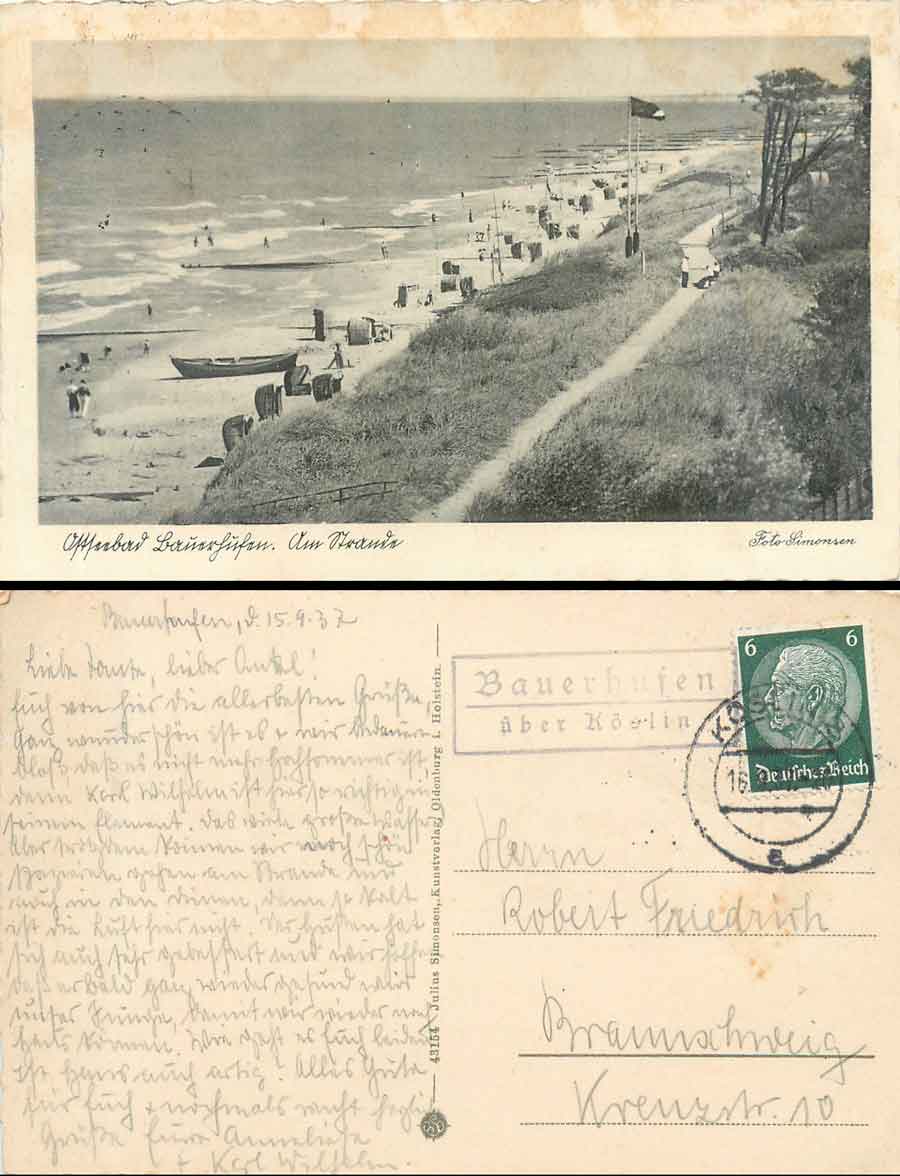 Ostseebad Bauerhufen. Am Strande
Foto Simonsen
Bauerhufen, d. 15.9.37
Liebe Tante, lieber Onkel!
Euch von hier die allerbesten Grüße.
Ganz wunderschön ist es + wir bedauern
bloß daß es nicht mehr Hochsommer ist
denn Karl Wilhelm ist hier so richtig in
seinem Element. Das viele große Wasser
Aber trotzdem können wir noch schön
spazieren gehen am Strande und
auch in den Dünen, denn so kalt
ist die Luft hier nicht. Der Husten hat
sich auch sehr gebessert und wir hoffen
daß er bald ganz wieder gesund wird
unser Junge, damit wir wieder nach
Haus können. Wie geht es Euch beiden
Ist Hans auch artig? Alles Gute
für Euch + nochmals recht herzl.
Grüße Eure Anneliese
+ Karl Wilhelm.
43154 Julius Simonsen, Kunstverlag, Oldenburg i. Holstein.
Bauerhufen
über Köslin
6 6
Deutsches Reich
KÖSLIN
16
a
Herrn
Robert Friedrich
Braunschweig
Kreuzstr. 10